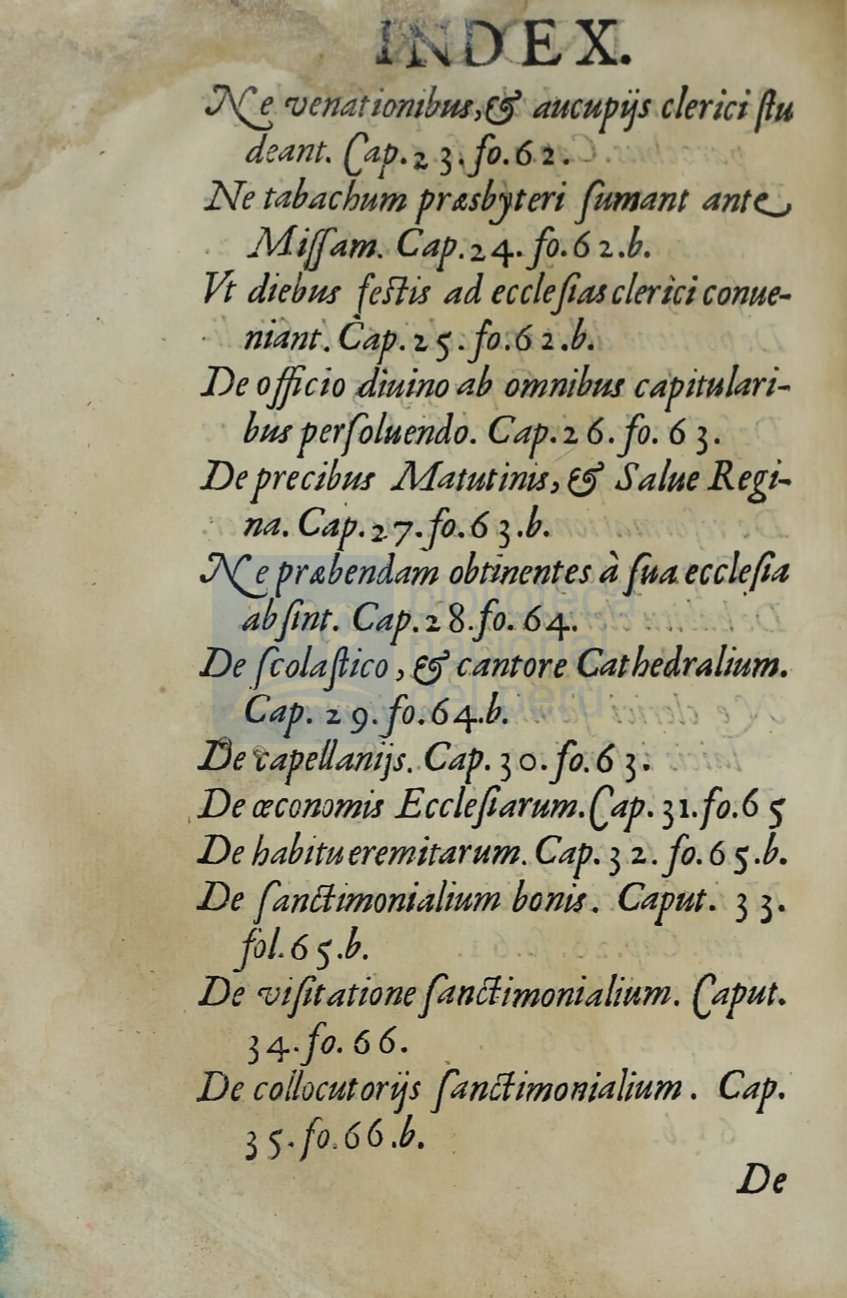 INDEX.
Ne venationibus, & aucupijs clerici ſtu
deant. Cap. 23. fo. 62.
Ne tabachum præsbyteri ſumant ante
Miſſam. Cap. 24. fo. 62.b.
Vt diebus feſtis ad eccleſias clerici conue-
niant. Cap. 25. fo. 62.b.
De officio diuino ab omnibus capitulari-
bus perſoluendo. Cap. 26. fo. 63.
De precibus Matutinis, & Salue Regi-
na. Cap. 27. fo. 63.b.
Ne præbendam obtinentes à ſua eccleſia
abſint. Cap. 28. fo. 64.
De ſcolaſtico, & cantore Cathedralium.
Cap. 29. fo. 64.b.
De capellanijs. Cap. 30. fo. 63.
De œconomis Eccleſiarum. Cap. 31. fo. 65
De habitu eremitarum. Cap. 32. fo. 65.b.
De ſanctimonialium bonis. Caput. 33.
fol. 65.b.
De viſitatione ſanctimonialium. Caput.
34. fo. 66.
De collocutorijs ſanctimonialium. Cap.
35. fo. 66.b.
De